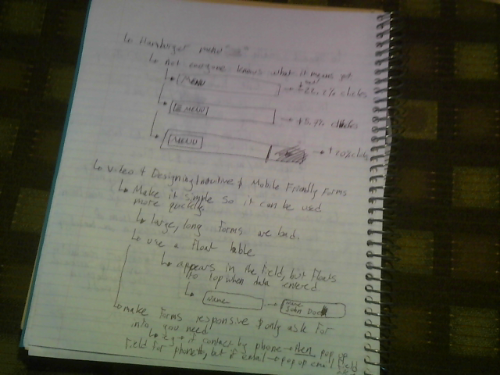 ↳ Hamburger menu "≡"
↳ not everyone knows what it means yet
[MENU] → clicks
[≡ MENU] → clicks
[MENU] →
↳ Video 4 Designing Intuitive & Mobile Friendly Forms
↳ Make it simple so it can be used
more quickly.
↳ large, long forms are bad.
↳ use a float lable
↳ appears in the field, but floats
to top when data entered
↳ [Name] → [Name John Doe]
↳ make forms responsive & only ask for
info you need
↳ e.g. if contact by phone → then pop up
field for phone #, but if email → pop up email field